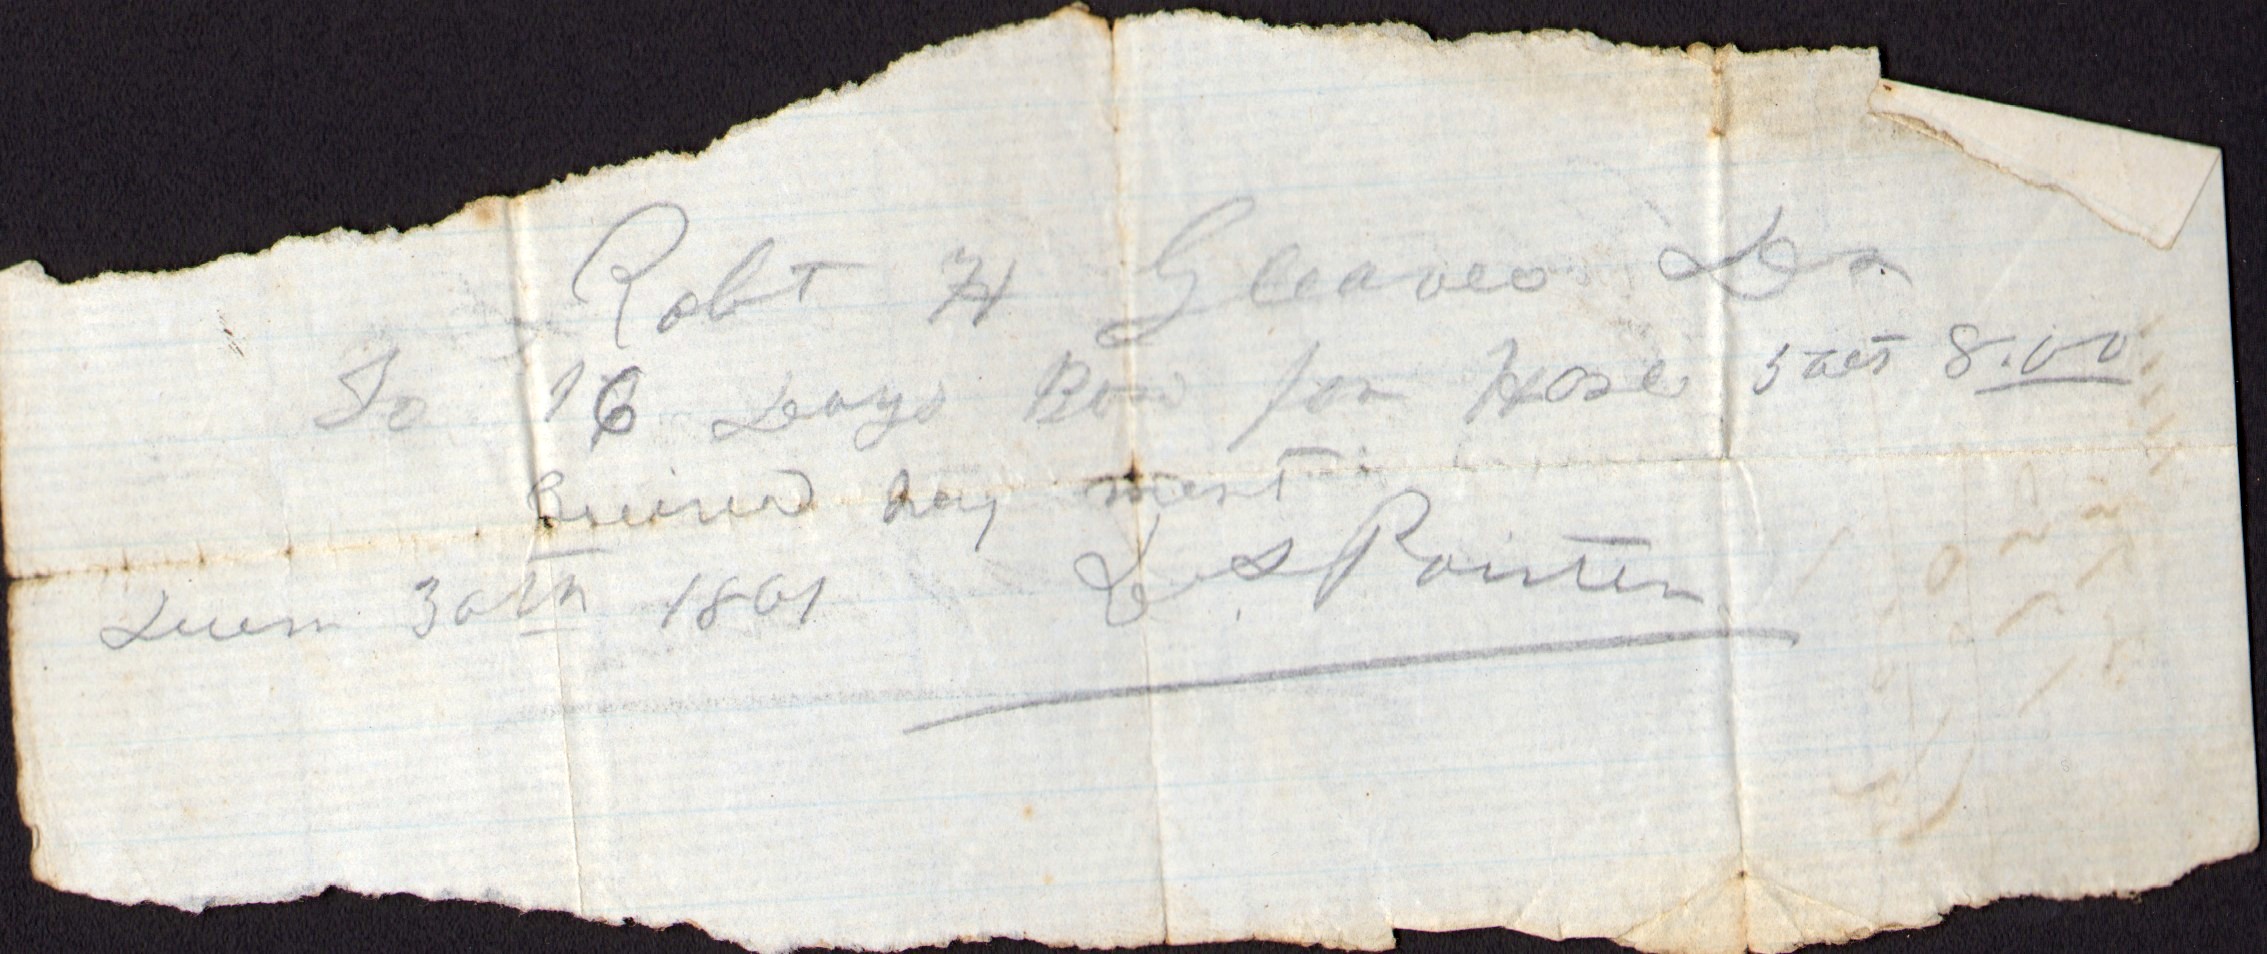 Robt H Gleaves Dr
To 16 Days Bord for Hose 5 cts 8.00
Received pay ment
30th 1861 D. S Pointer